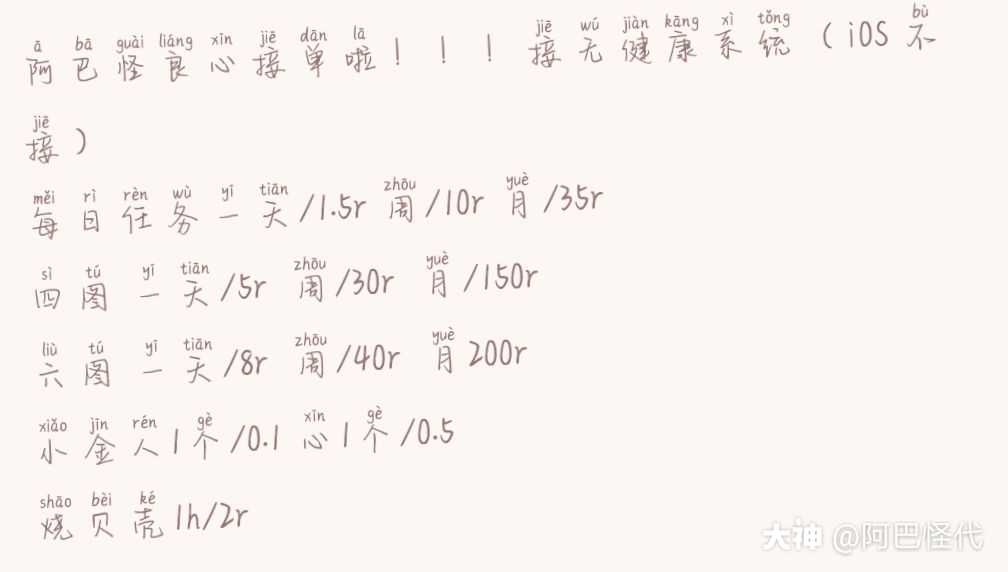 ā bā guài liáng xīn jiē dān lā jiē wú jiàn kāng xì tǒng bù
阿巴怪良心接单啦！！！接无健康系统（iOS不
jiē
接）
měi rì rèn wù yī tiān zhōu yuè
每日任务一天/1.5r 周/10r 月/35r
sì tú yī tiān zhōu yuè
四图 一天/5r 周/30r 月/150r
liù tú yī tiān zhōu yuè
六图 一天/8r 周/40r 月200r
xiǎo jīn rén gè xīn gè
小金人1个/0.1 心1个/0.5
shāo bèi ké
烧贝壳1h/2r
大神 @阿巴怪代